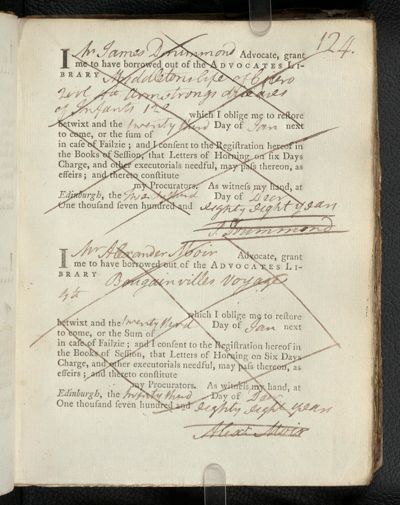 124.
I Mr James Drummond Advocate, grant
me to have borrowed out of the ADVOCATES LI-
BRARY Middletons life of Cicero
Armstrongs diseases
of Infants
which I oblige me to reſtore
betwixt and the twenty third Day of Jan next
to come, or the ſum of
in caſe of Failzie; and I conſent to the Regiſtration hereof in
the Books of Seſſion, that Letters of Horning on ſix Days
Charge, and other executorials needful, may paſs thereon, as
effeirs; and thereto conſtitute
my Procurators. As witneſs my hand, at
Edinburgh, the twenty third Day of Decr
One thouſand ſeven hundred and eighty eight years
J Drummond
I Mr Alexander Moir Advocate, grant
me to have borrowed out of the ADVOCATES LI-
BRARY Bougainvilles Voyage
4to
which I oblige me to reſtore
betwixt and the twenty third Day of Jan next
to come, or the Sum of
in caſe of Failzie; and I conſent to the Regiſtration hereof in
the Books of Seſſion, that Letters of Horning on Six Days
Charge, and other executorials needful, may paſs thereon, as
effeirs; and thereto conſtitute
my Procurators. As witneſs my hand, at
Edinburgh, the twenty third Day of Decr
One thouſand ſeven hundred and eighty eight years
Alexr Moir